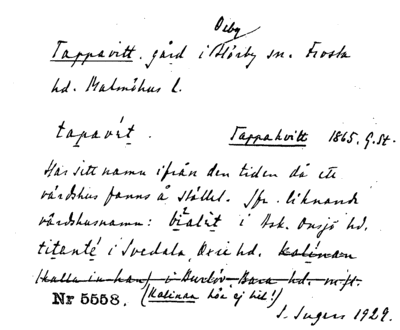 Osby
Tappavitt. gård i Hörby sn. Frosta
hd. Malmöhus l.
tapavít. Tappahvitt 1865. G.St.
Har sitt namn ifrån den tiden då ett
värdshus fanns å stället. Jfr. liknande
värdshusnamn: i Ask. Onsjö hd.
titanté i Svedala, Oxie hd. kalínan
(kalla in han) i Burlöv Bara hd. m.fl.
Nr 5558. (Kalinan hör ej hit!)
S. 1929.